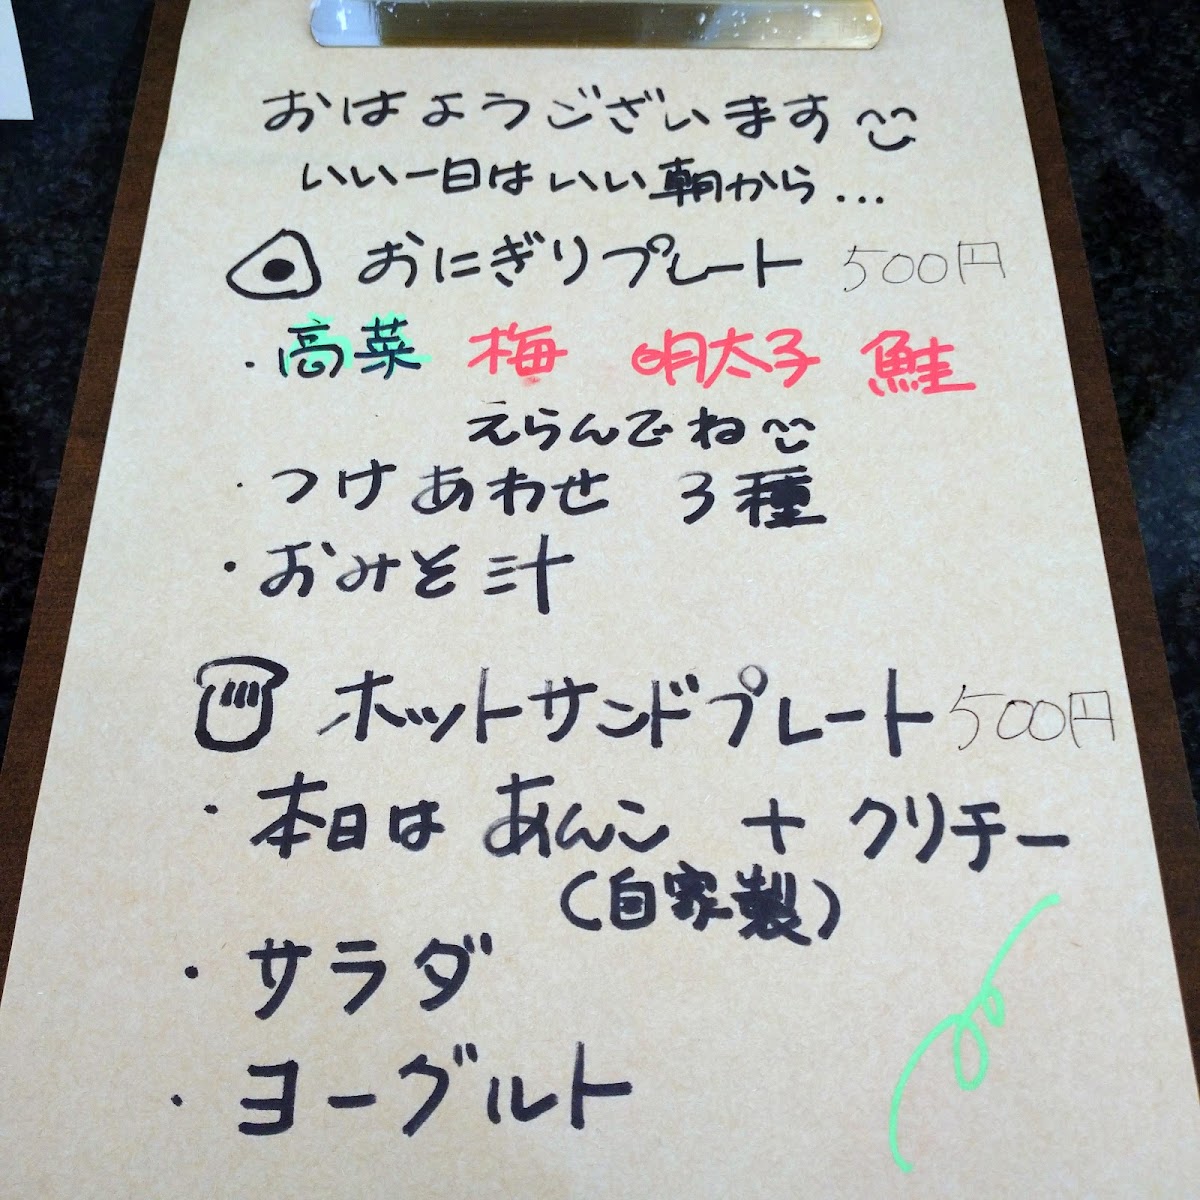 おはようございます
いい一日はいい朝から...
おにぎりプレート 500円
・高菜 梅 明太子 鮭
えらんでね
・つけあわせ 3種
・おみそ汁
ホットサンドプレート 500円
・本日は あんこ + クリチー
(自家製)
・サラダ
・ヨーグルト